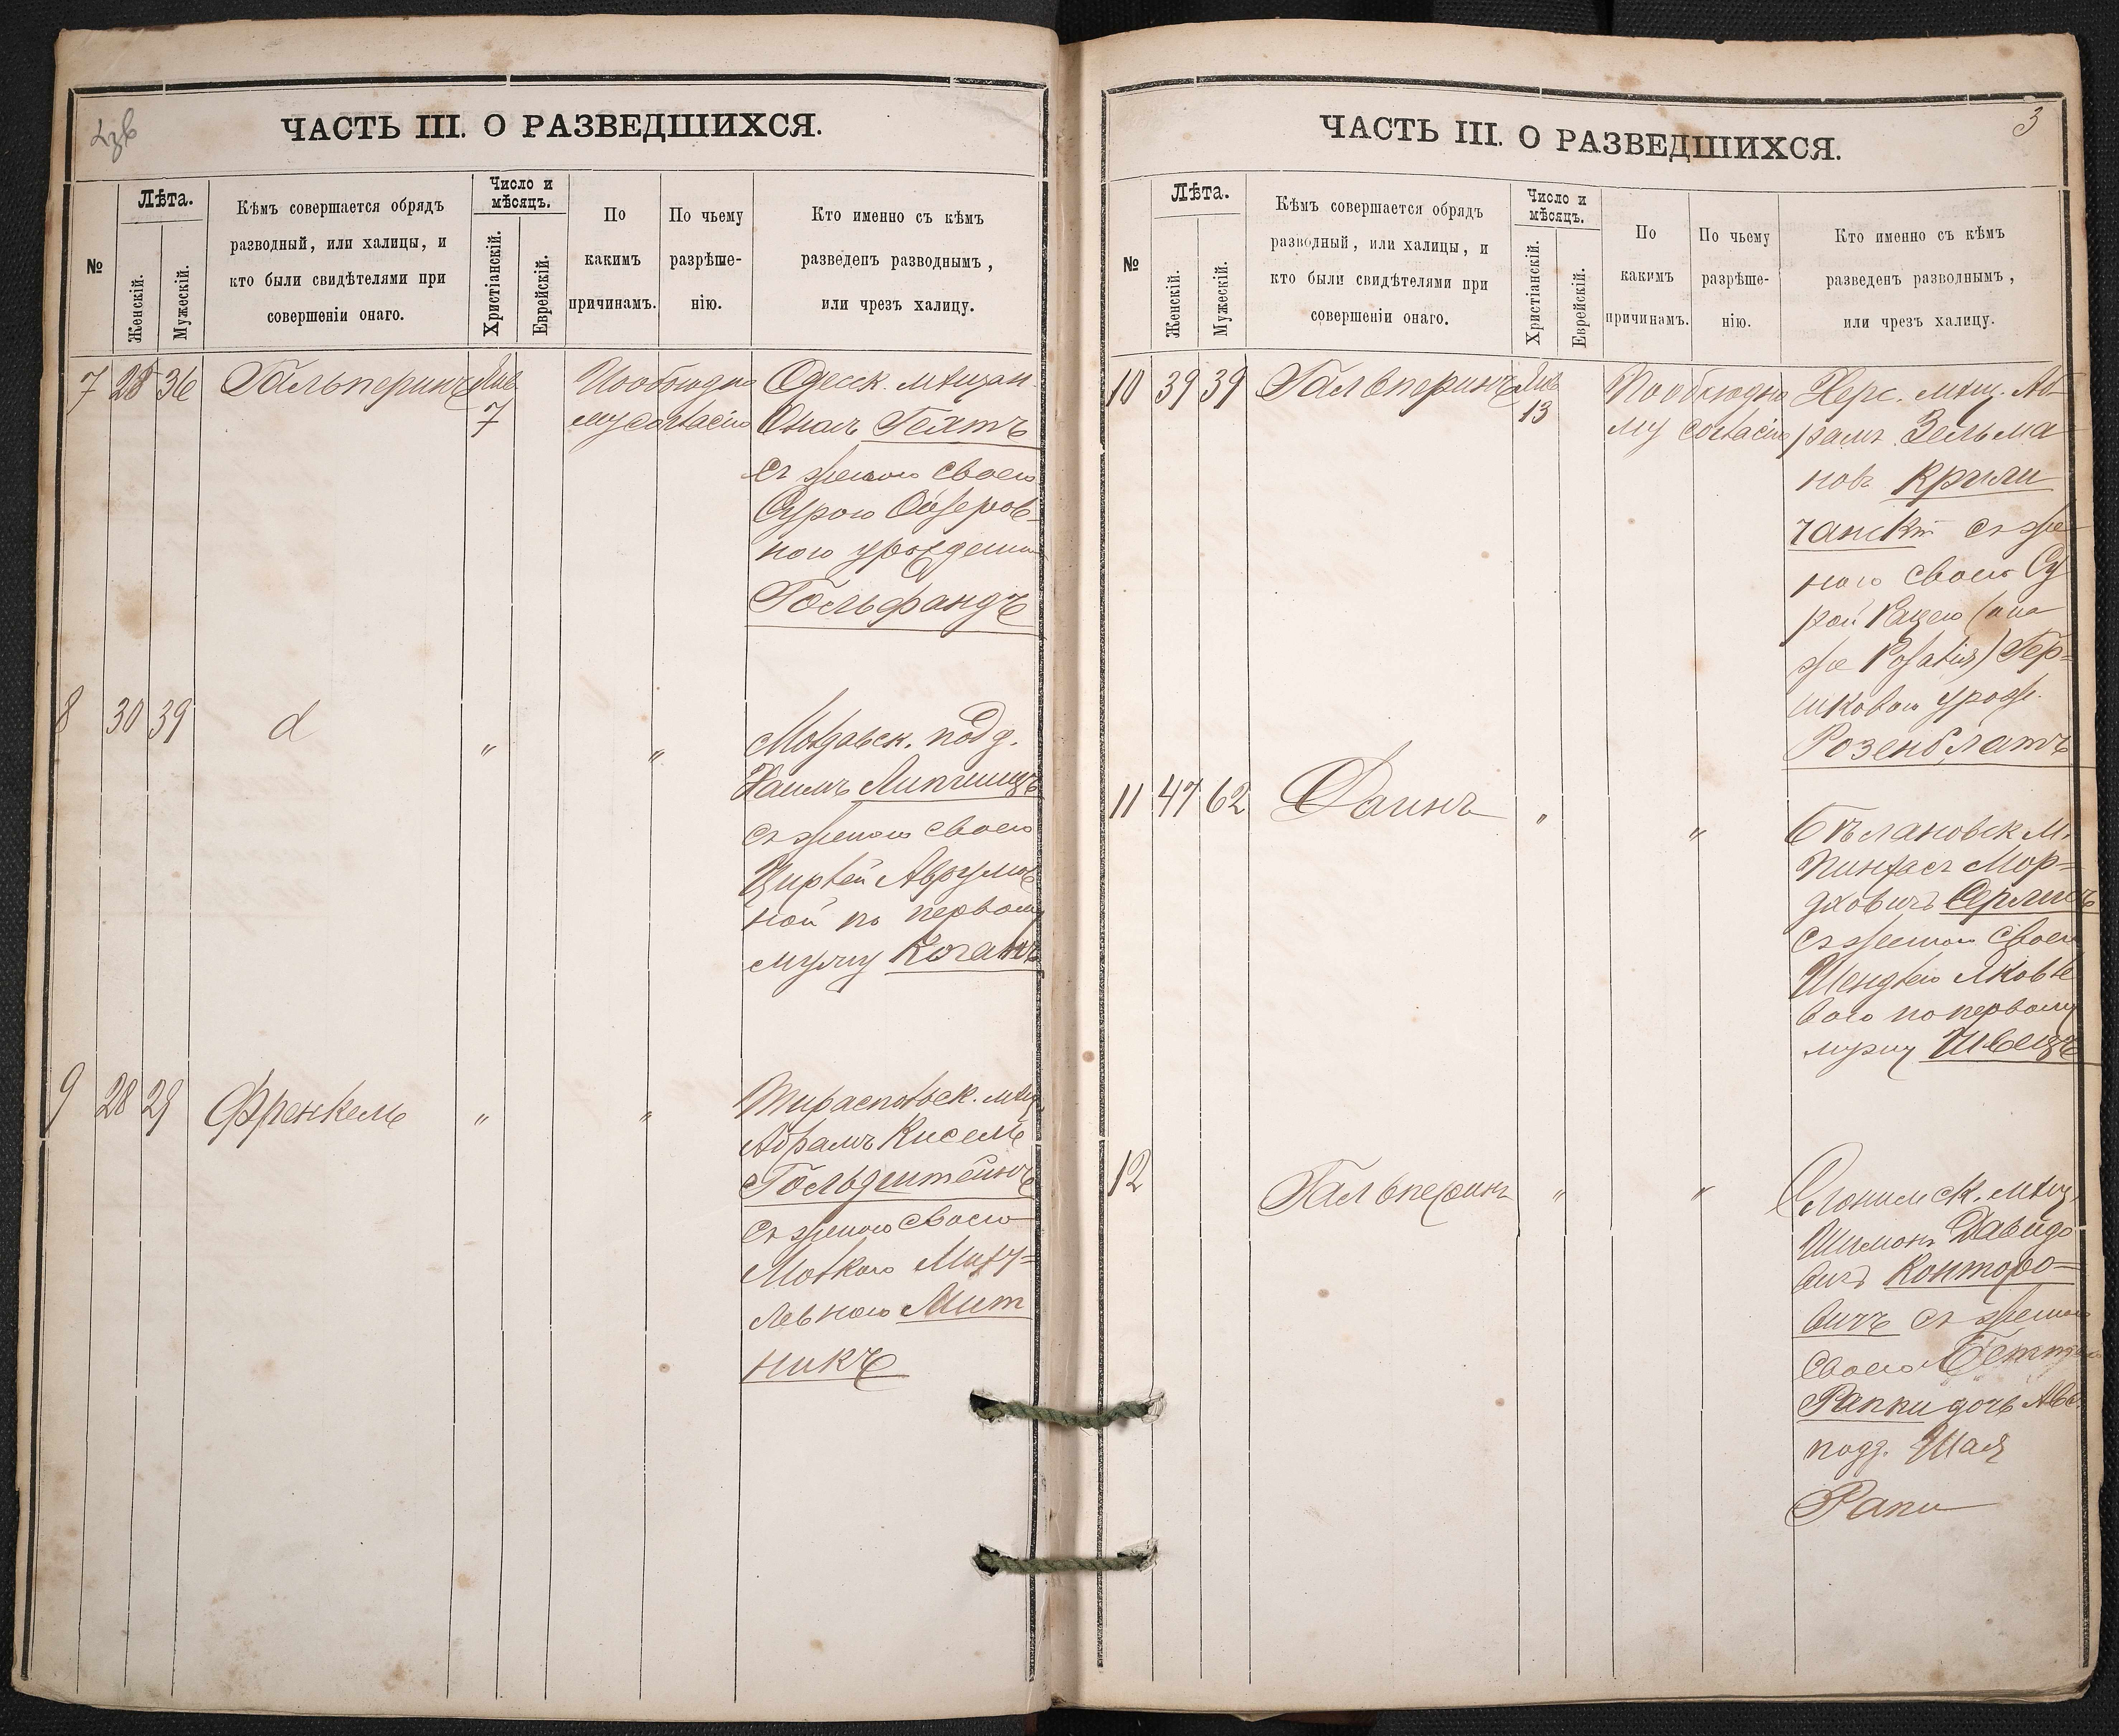 ЧАСТЬ III. О РАЗВЕДШИХСЯ.
№
Лѣта.
Женскій.
Мужескій.
Кѣмъ совершается обрядъ
разводный, или халицы, и
кто были свидѣтелями при
совершеніи онаго.
Число и
мѣсяцъ.
Христіанскій.
Еврейскій.
По
какимъ
причинамъ.
По чьему
разрѣше-
нію.
Кто именно съ кѣмъ
разведенъ разводнымъ,
или чрезъ халицу.
7 28 36 Гальперинъ Янв 7
Пообоюдно
му согласію
Одесск. мѣщан.
Гехтъ
съ женою своею
Сурою Ойзеров-
ною урожденн
Гольфандъ
8 30 39 d " "
Молдавск. подд.
Хаимъ Липчишъ
съ женою своею
Цирлей Аврумов
ной по первому
мужу Коганъ
9 28 29 Френкель " "
Тираспольск. мѣщ.
Абрамъ Кисель
Гольдштейнъ
съ женою своею
Малкою Миху-
левною Мит
никъ
ЧАСТЬ III. О РАЗВЕДШИХСЯ.
3
№
Лѣта.
Женскій.
Мужескій.
Кѣмъ совершается обрядъ
разводный, или халицы, и
кто были свидѣтелями при
совершеніи онаго.
Число и
мѣсяцъ.
Христіанскій.
Еврейскій.
По
какимъ
причинамъ.
По чьему
разрѣше-
нію.
Кто именно съ кѣмъ
разведенъ разводнымъ,
или чрезъ халицу.
10 39 39 Гальперинъ Янв 13
Пообоюдно
му согласію
Херс. мѣщ. Аб-
рамъ Зельма
новъ Крыли
чанск съ же
ною своею Су
рой Рацею (она
же Розалія) Гер-
шковою урожд.
Розенблатъ
11 47 62 Фаинъ " "
Бѣлановск м.
Пинхасъ Мор-
дховичъ
съ женою своею
Шендлею Яковле
вою по первому
мужу Швецъ
12 Гальперинъ " "
Слонимск. мѣщ.
Шимонъ Давидо
вичъ Конторо-
вичъ съ женою
своею
Раппи дочь Авс.
подд. Шая
Рапи